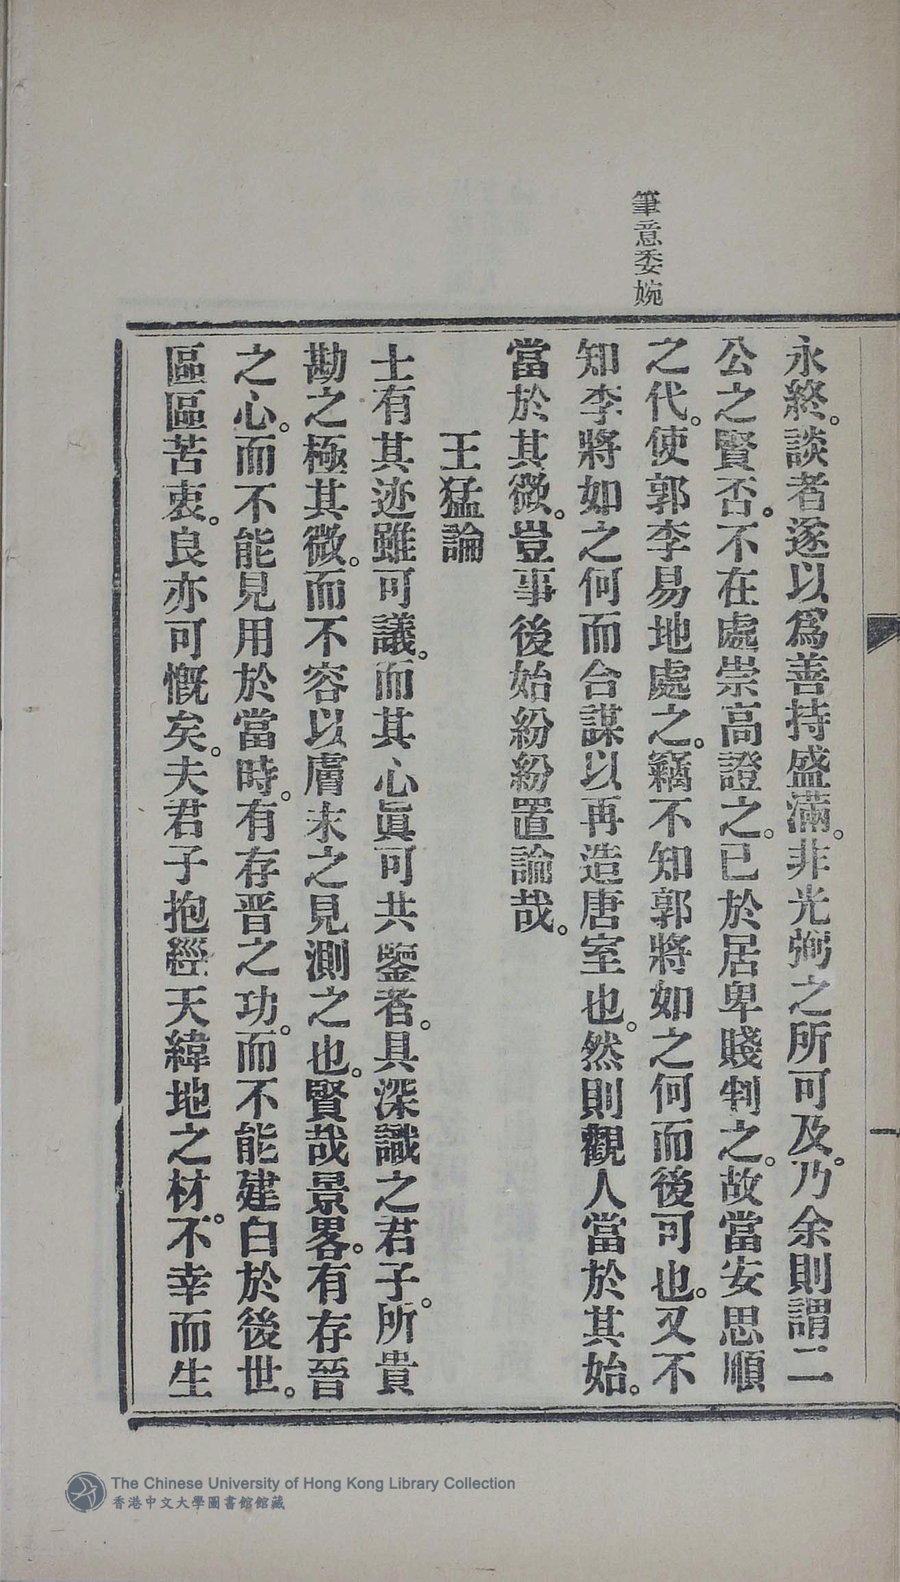 筆意委婉
永終。談者遂以爲善持盛滿。非光弼之所可及。乃余則謂二
公之賢否。不在處崇高證之。已於居卑賤判之。故當安思順
之代。使郭李易地處之。竊不知郭將如之何而後可也。又不
知李將如之何而合謀以再造唐室也。然則觀人當於其始。
當於其微。豈事後始紛紛置論哉。
王猛論
士有其迹雖可議。而其心眞可共鑒者。具深識之君子。所貴
勘之極其微。而不容以膚末之見測之也。賢哉景畧。有存晉
之心。而不能見用於當時。有存晋之功。而不能建白於後世。
區區苦衷。良亦可慨矣。夫君子抱經天緯地之材。不幸而生
The Chinese University of Hong Kong Library Collection
香港中文大學圖書館館藏